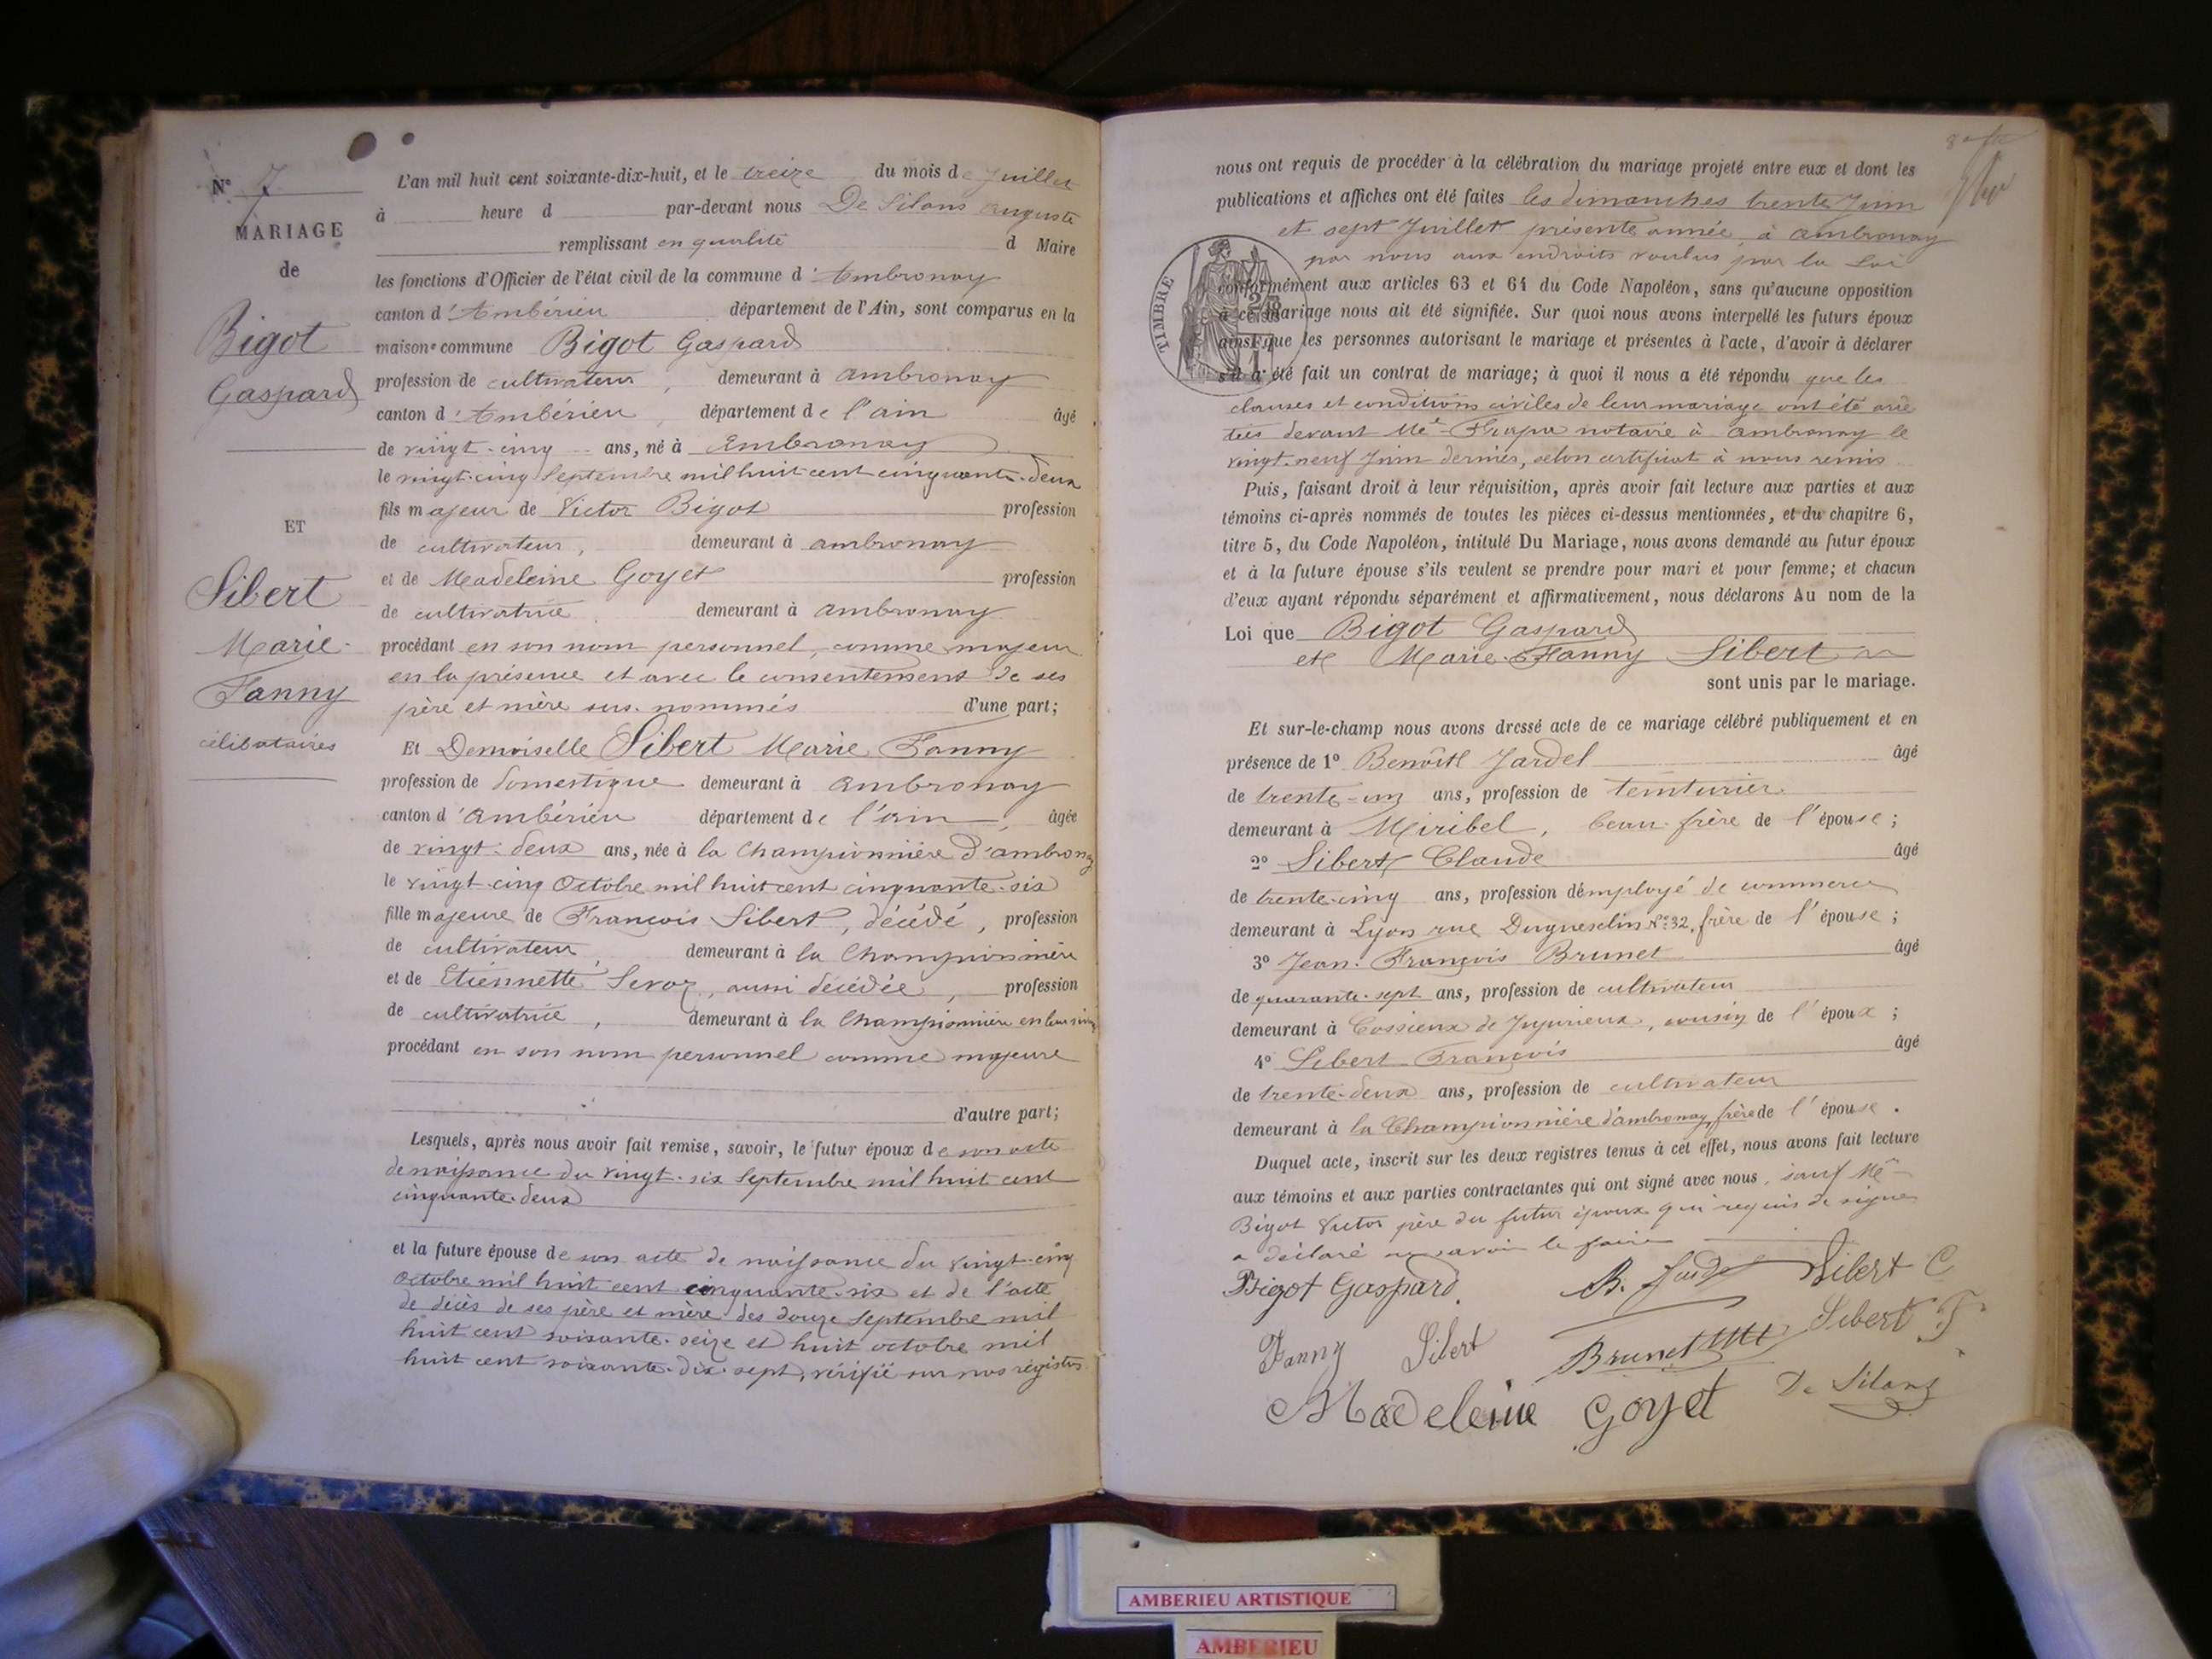 N° 7
MARIAGE
de
Bigot
Gaspard
ET
Sibert
Marie-
Fanny
célibataires
L'an mil huit cent soixante-dix-huit, et le treize du mois de Juillet
à heure d par-devant nous De Silans Auguste
remplissant en qualité d Maire
les fonctions d'Officier de l'état civil de la commune d'Ambronay
canton d'Ambérieu département de l'Ain, sont comparus en la
maison commune Bigot Gaspard
profession de cultivateur, demeurant à Ambronay
canton d'Ambérieu, département de l'ain âgé
de vingt-cinq ans, né à Ambronay
le vingt-cinq Septembre mil huit cent cinquante-deux
fils majeur de Victor Bigot profession
de cultivateur, demeurant à ambronay
et de Madeleine Goyet profession
de cultivatrice demeurant à ambronay
procédant en son nom personnel, comme majeur
en la présence et avec le consentement de ses
père et mère sus-nommés d'une part;
Et Demoiselle Sibert Marie Fanny
profession de domestique demeurant à ambronay
canton d'ambérieu département de l'ain, âgée
de vingt-deux ans, née à la Championnière d'ambronay
le vingt-cinq Octobre mil huit cent cinquante-six
fille majeure de François Sibert, décédé, profession
de cultivateur demeurant à la Championnière
et de Etiennette Sevoz, aussi décédée, profession
de cultivatrice, demeurant à la Championnière en leur vivant
procédant en son nom personnel comme majeure
d'autre part;
Lesquels, après nous avoir fait remise, savoir, le futur époux de son acte
de naissance du vingt-six Septembre mil huit cent
cinquante-deux
et la future épouse de son acte de naissance du vingt-cinq
Octobre mil huit cent cinquante-six et de l'acte
de décès de ses père et mère des douze Septembre mil
huit cent soixante-seize et huit octobre mil
huit cent soixante-dix-sept, vérifié sur nos registres
nous ont requis de procéder à la célébration du mariage projeté entre eux et dont les
publications et affiches ont été faites les dimanches trente Juin
et sept Juillet présente année, à Ambronay
par nous aux endroits voulus par la Loi
conformément aux articles 63 et 64 du Code Napoléon, sans qu'aucune opposition
à ce mariage nous ait été signifiée. Sur quoi nous avons interpellé les futurs époux
ainsi que les personnes autorisant le mariage et présentes à l'acte, d'avoir à déclarer
s'il a été fait un contrat de mariage; à quoi il nous a été répondu que les
clauses et conditions civiles de leur mariage ont été arrê
tées devant Me notaire à ambronay le
vingt-neuf Juin dernier, selon certificat à nous remis
TIMBRE
Puis, faisant droit à leur réquisition, après avoir fait lecture aux parties et aux
témoins ci-après nommés de toutes les pièces ci-dessus mentionnées, et du chapitre 6,
titre 5, du Code Napoléon, intitulé Du Mariage, nous avons demandé au futur époux
et à la future épouse s'ils veulent se prendre pour mari et pour femme; et chacun
d'eux ayant répondu séparément et affirmativement, nous déclarons Au nom de la
Loi que Bigot Gaspard
et Marie-Fanny Sibert
sont unis par le mariage.
Et sur-le-champ nous avons dressé acte de ce mariage célébré publiquement et en
présence de 1° Benoît Jardel âgé
de trente-un ans, profession de teinturier
demeurant à Miribel, beau-frère de l'épouse;
2° Sibert Claude âgé
de trente-cinq ans, profession d'employé de commerce
demeurant à Lyon rue Duguesclin N° 32, frère de l'épouse;
3° Jean-François Brunet âgé
de quarante-sept ans, profession de cultivateur
demeurant à Cossieux de Jujurieux, cousin de l'époux;
4° Sibert François âgé
de trente-deux ans, profession de cultivateur
demeurant à la Championnière d'ambronay, frère de l'épouse.
Duquel acte, inscrit sur les deux registres tenus à cet effet, nous avons fait lecture
aux témoins et aux parties contractantes qui ont signé avec nous, sauf
Bigot Victor père du futur époux qui requis de signer
a déclaré ne savoir le faire
Bigot Gaspard. B. Jardel Sibert C
Fanny Sibert Brunet Sibert F
Madeleine Goyet De Silans
AMBERIEU ARTISTIQUE
AMBERIEU